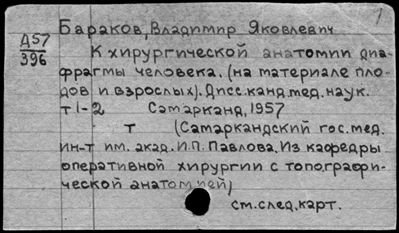 1
Бараков, Владимир Яковлевич
Д57
396
К хирургической анатомии диа-
фрагмы человека. (на материале пло-
дов и взрослых). Дисс. канд. мед. наук.
т 1-2 Самарканд, 1957
т (Самаркандский гос. мед.
ин-т им. акад. И.П. Павлова. Из кафедры
оперативной хирургии с топографи-
ческой анатомией)
см. след. карт.